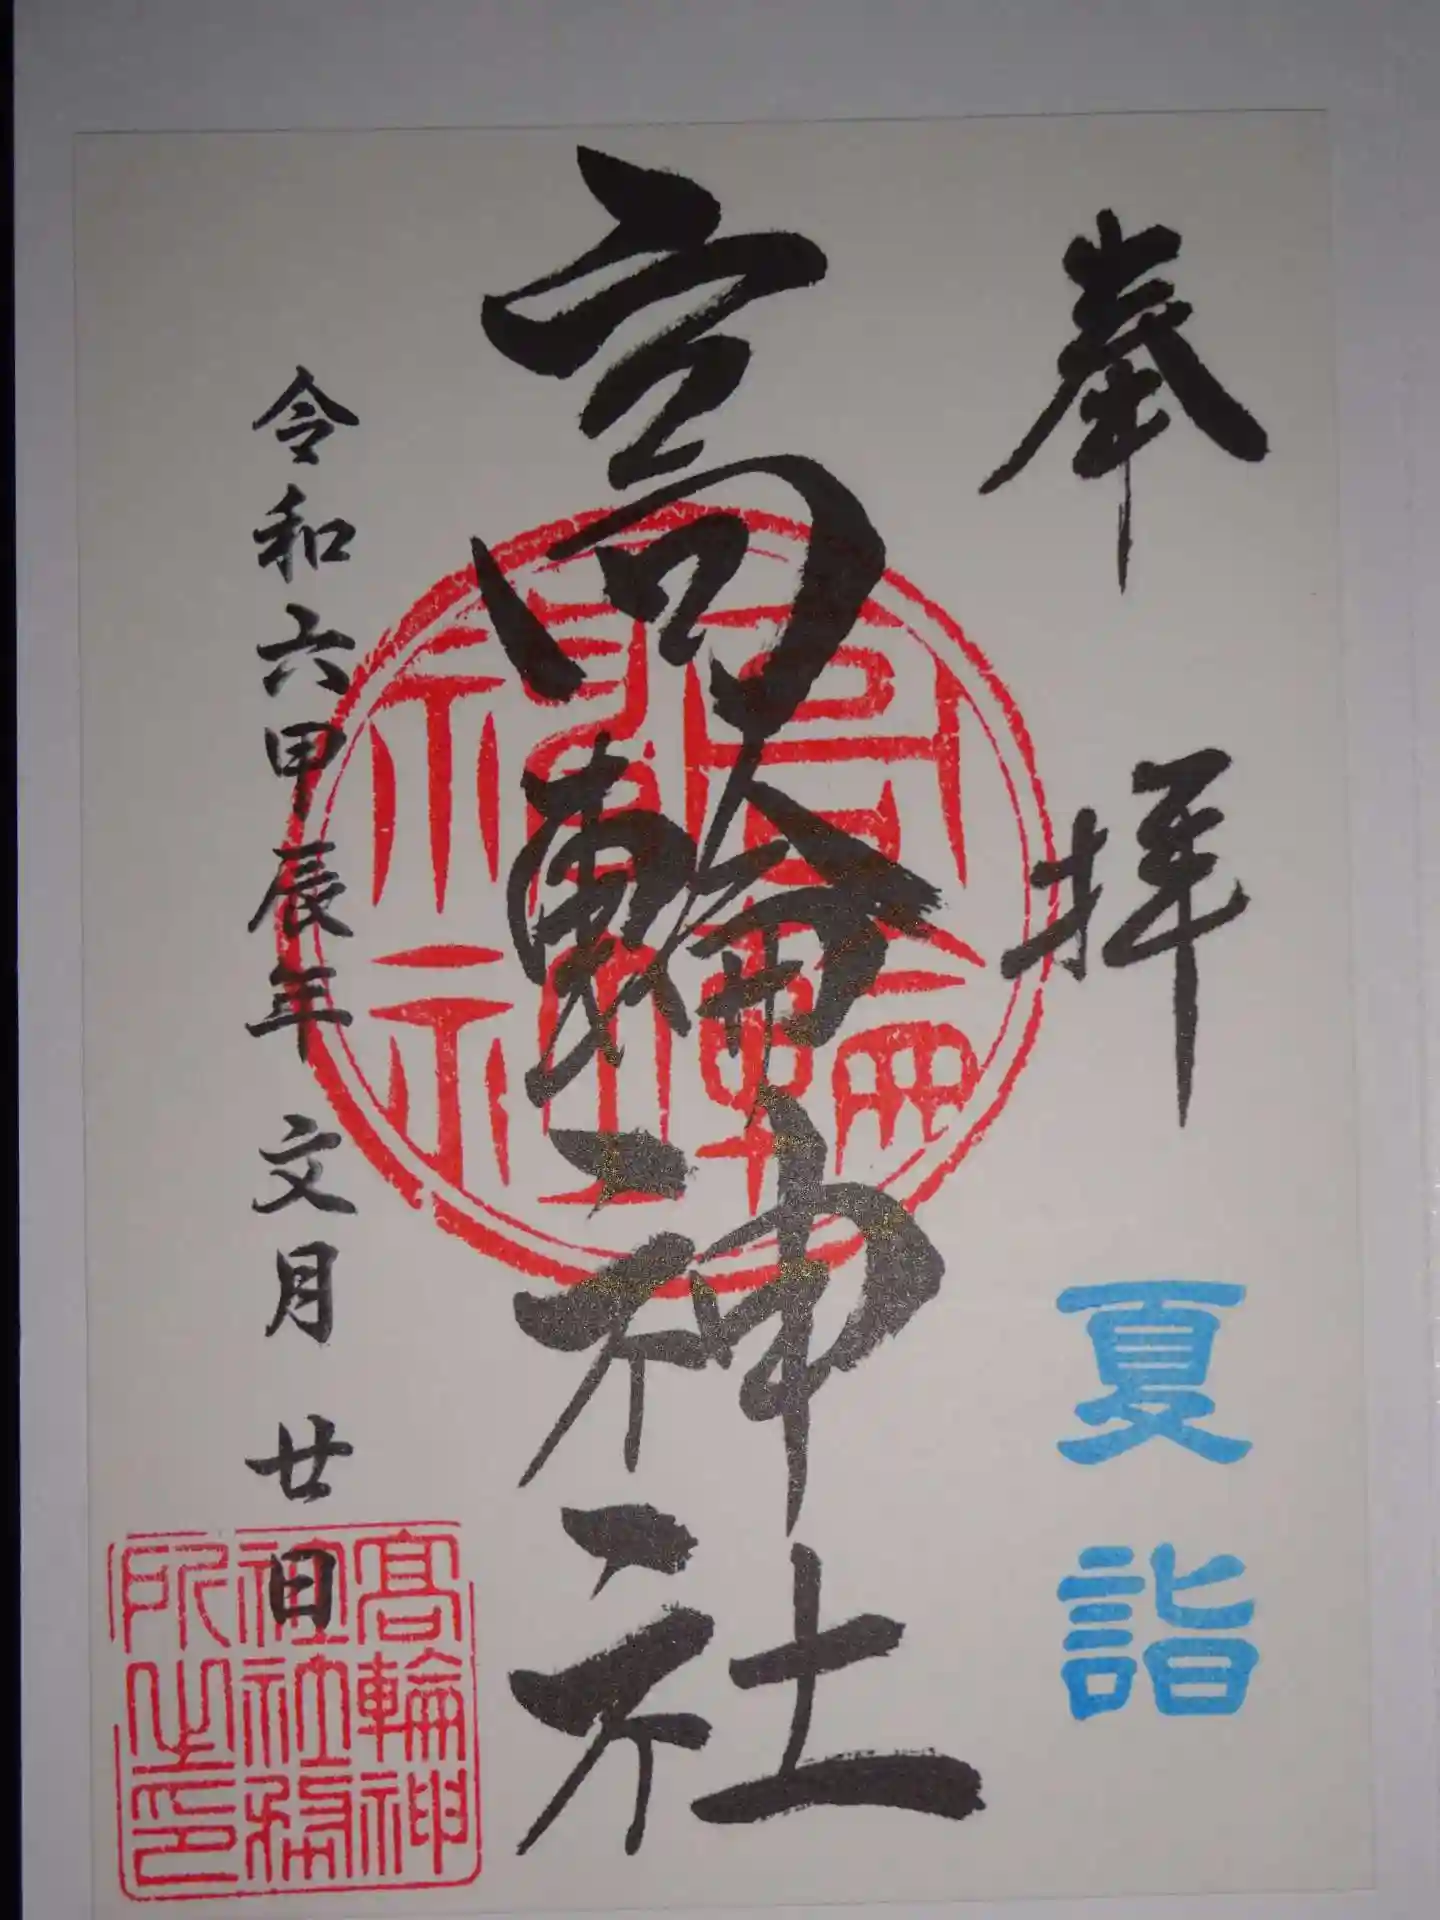 奉拝
夏詣
高輪神社
令和六甲辰年 文月 廿日
高輪神社
高輪神
社社務
所之印